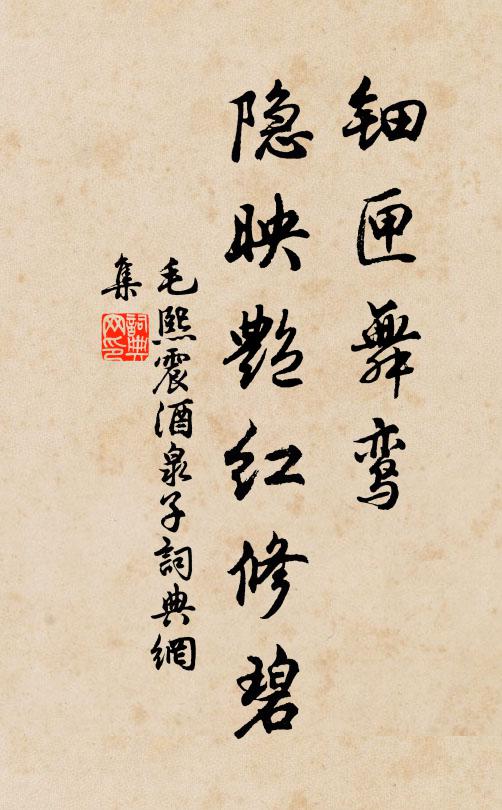 钿匣舞鸾
隐映艳红修碧
毛熙震酒泉子詞典網
集
詞典网印